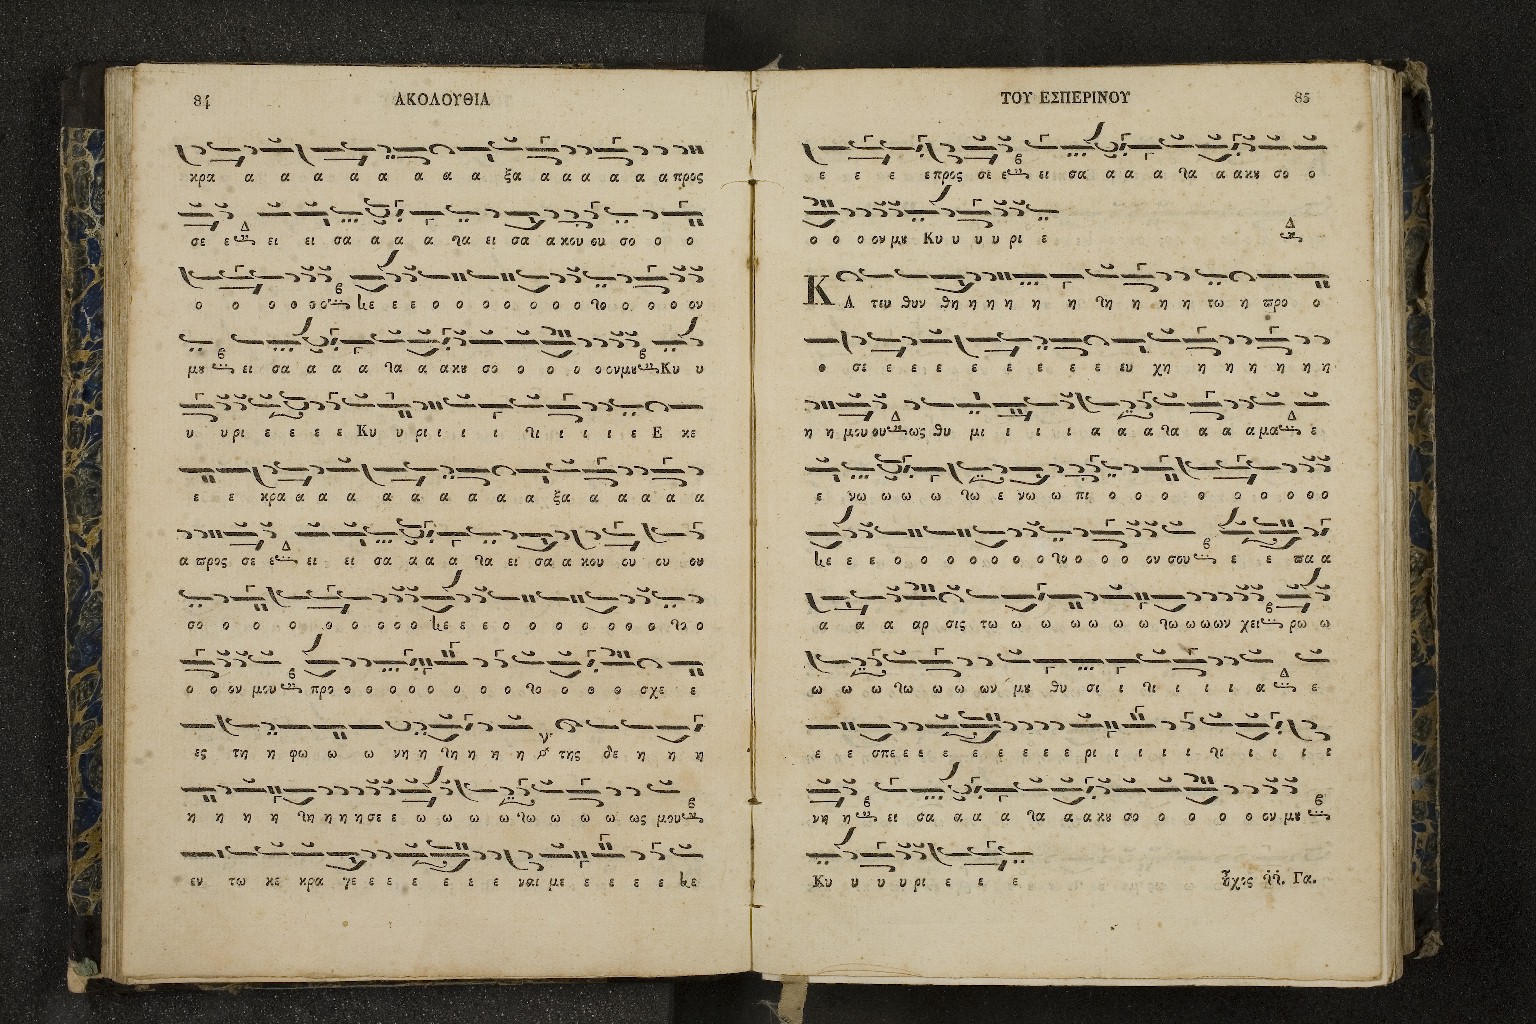 84 ΑΚΟΛΟΥΘΙΑ
κρα α α α α α α α α ξα α α α α α α προς
σε ε ει ει σα α α α τα ει σα α κου ου σο ο ο
ο ο ο ο ο ο σε ε ε ο ο ο ο ο ο ο ο το ο ο ο ον
μȣ ει σα α α α τα α α κȣ σο ο ο ο ο ονμȣ Κυ υ
υ υρι ε ε ε ε Κυ υ ρι ι ι ι τι ι ι ι ε Ε κε
ε ε κρα α α α α α α α α α ξα α α α α α
α προς σε ε ει ει σα α α α τα ει σα α κου ου ου ου
σο ο ο ο ο ο ο ο σε ε ε ο ο ο ο ο ο ο το ο
ο ο ον μου προ ο ο ο ο ο ο ο ο το ο ο ο σχε ε
ες τη η φω ω ω νη η τη η η η της δε η η η
η η η η τη η η η σε ε ω ω ω ω τω ω ω ω ως μου
εν τω κε κρα γε ε ε ε ε ε ε ναι με ε ε ε ε σε
ΤΟΥ ΕΣΠΕΡΙΝΟΥ 85
ε ε ε επρος σε ε ει σα α α α τα α ακȣ σο ο
ο ο ο ον μȣ Κυ υ υ υ ρι ε
ΚΑ τευ θυν θη η η η η η τη η η η τω η προ ο
ο σε ε ε ε ε ε ε ε ε ευ χη η η η η η
η η μου ου ως θυ μι ι ι ι α α α τα α α α μα ε
ε νω ω ω ω τω ε νω ω πι ο ο ο ο ο ο ο ο ο
σε ε ε ο ο ο ο ο ο ο το ο ο ο ον σου ε ε πα α
α α α αρ σις τω ω ω ω ω ω τω ω ω ων χει ρω ω
ω ω ω τω ω ω ων μȣ θυ σι ι τι ι ι ι α ε
ε ε σπε ε ε ε ε ε ε ε ε ρι ι ι ι ι τι ι ι ι ι
νη η ει σα α α α τα α α κȣ σο ο ο ο ο ον μȣ
Κυ υ υ υ ρι ε ε ε ἦχος Γα.